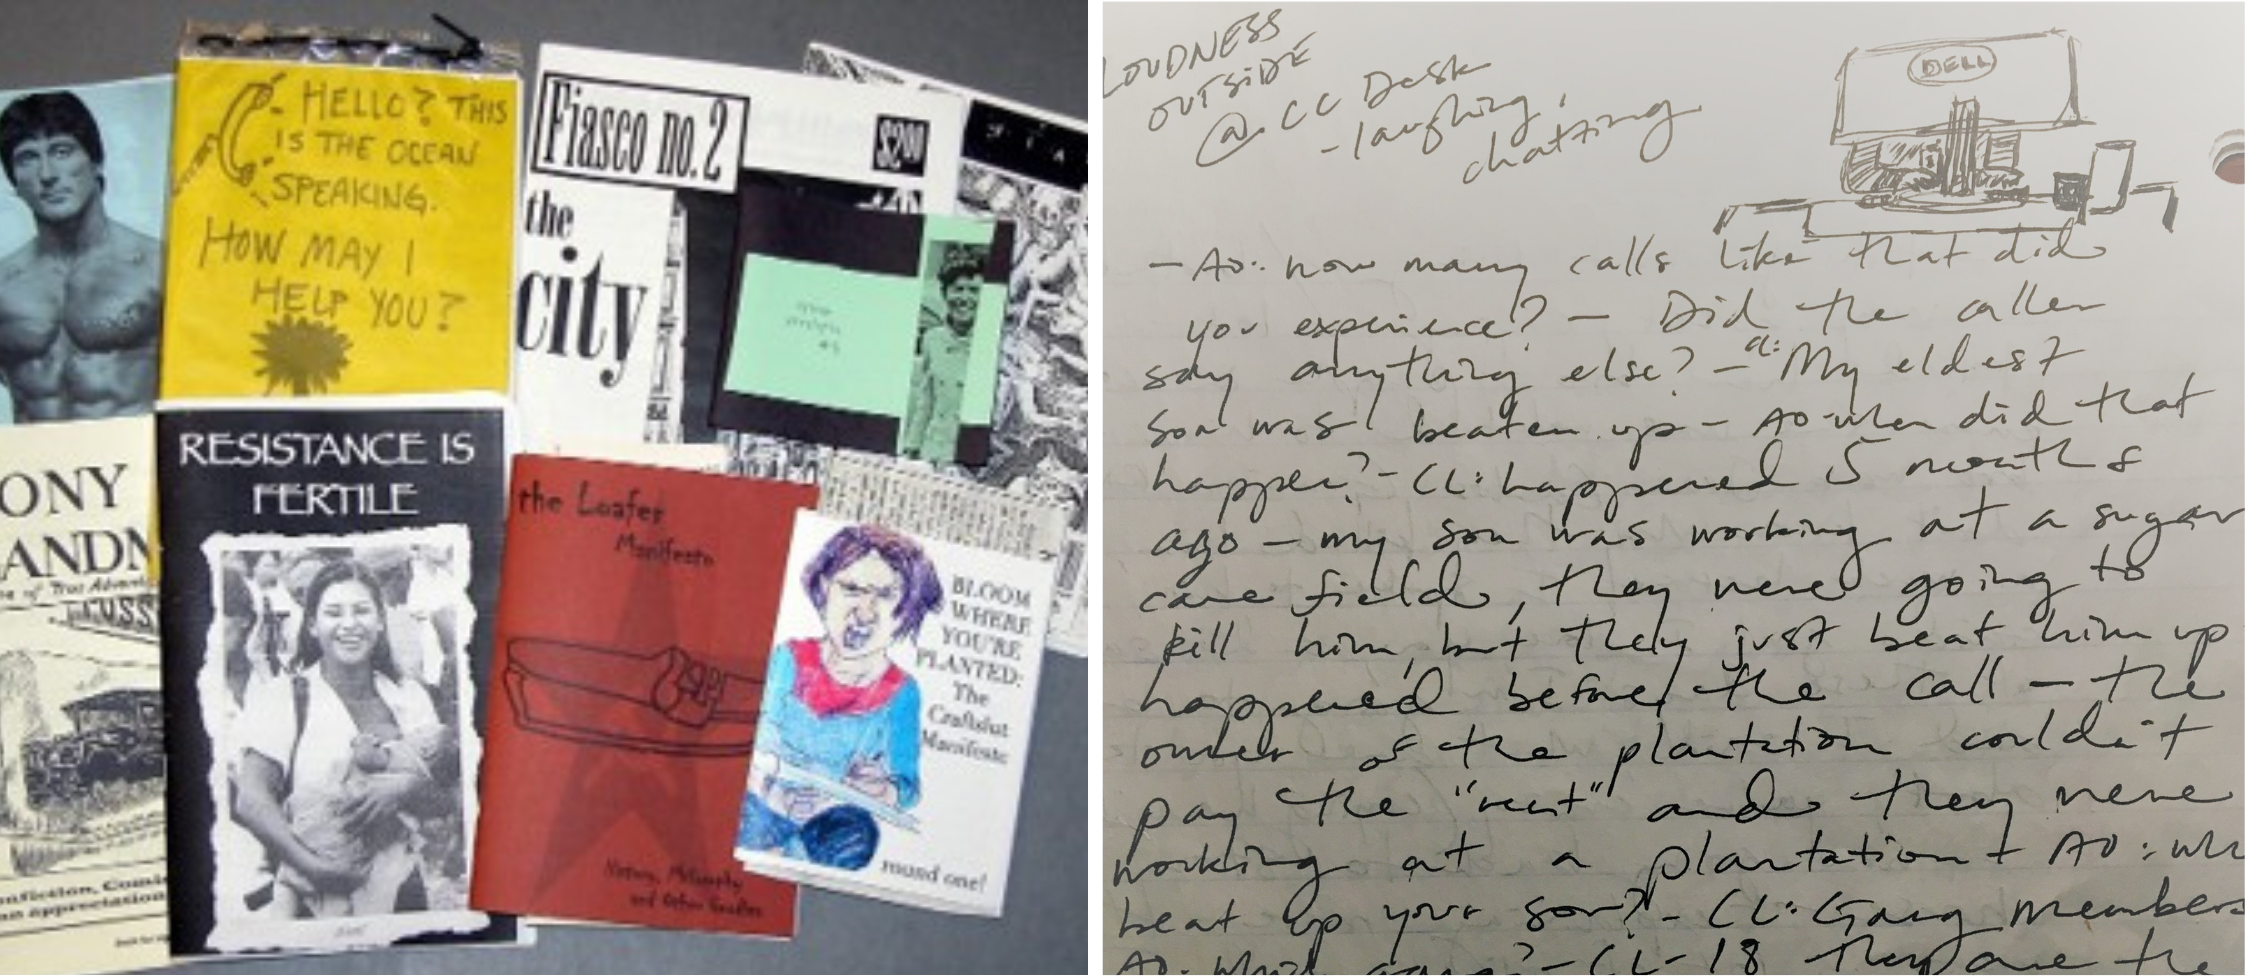 HELLO? THIS
IS THE OCEAN
SPEAKING.
HOW MAY I
HELP YOU?
Fiasco no. 2
$2.00
the
city
ONY
ANDM
of True Adven
RESISTANCE IS
FERTILE
the Loafer
Manifesto
History, Philosophy
and Other Studies
BLOOM
WHERE
YOU'RE
PLANTED:
The
Craftslut
Manifesto
round one!
nfiction, Comi
an appreciation
LOUDNESS
OUTSIDE
@ CC Desk
- laughing,
chatting
DELL
- AO: how many calls like that did
you experience? - Did the caller
say anything else? - a: My eldest
son was beaten up - AO when did that
happen? - CL: happened 5 months
ago - my son was working at a sugar
cane field, they were going to
kill him, but they just beat him up
happened before the call - the
owner of the plantation couldn't
pay the "rent" and they were
working at a plantation + AO: who
beat up your son? - CL: Gang members
AO: which gang? - CL - 18 they are the